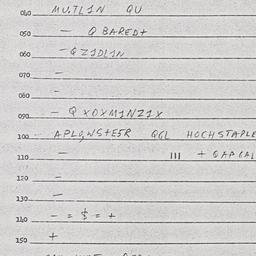 040 MU.TL1N QU
050 — Q BARED+
060 — QZ1DL1N
070 —
080 —
090 — QXOXM1NZ1X
100 APLQWS+E5R QGL HOCHSTAPLE
110 — III + GAPGAL
120 —
130 —
140 — = $ = +
150 +